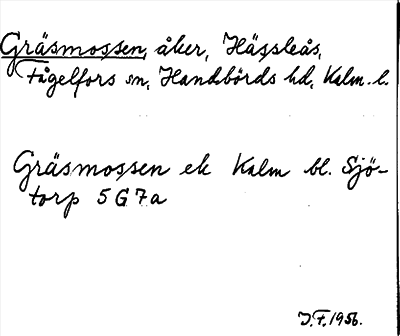 Gräsmossen, åker, Hässleås,
Fågelfors sn, Handbörds hd, Kalm. l.
Gräsmossen ek Kalm bl. Sjö-
torp 5 G 7 a
J.F. 1956.